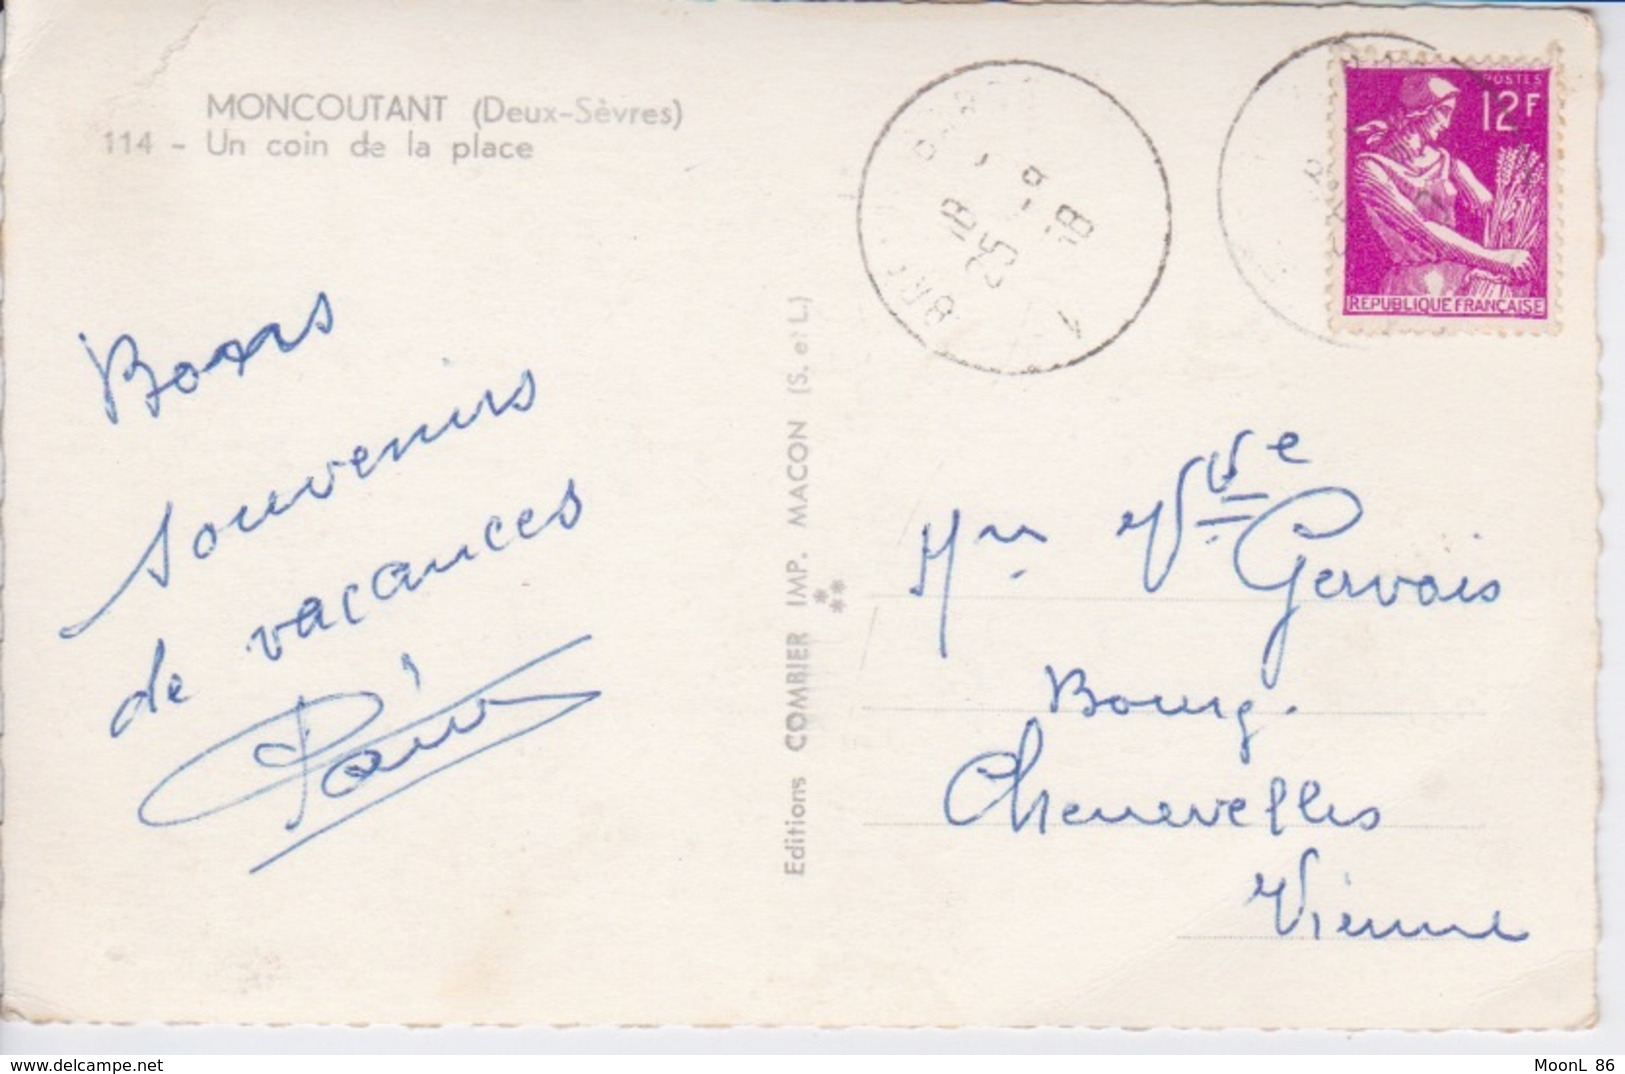 MONCOUTANT (Deux-Sèvres)
114 - Un coin de la place
POSTES
12F
REPUBLIQUE FRANÇAISE
18
25 - 9
18
Bons
souvenirs
de vacances
Editions COMBIER IMP. MACON (S. et L.)
Mme Vve Gervais
Bourg.
Chenevelles
Vienne
www.delcampe.net
MoonL 86